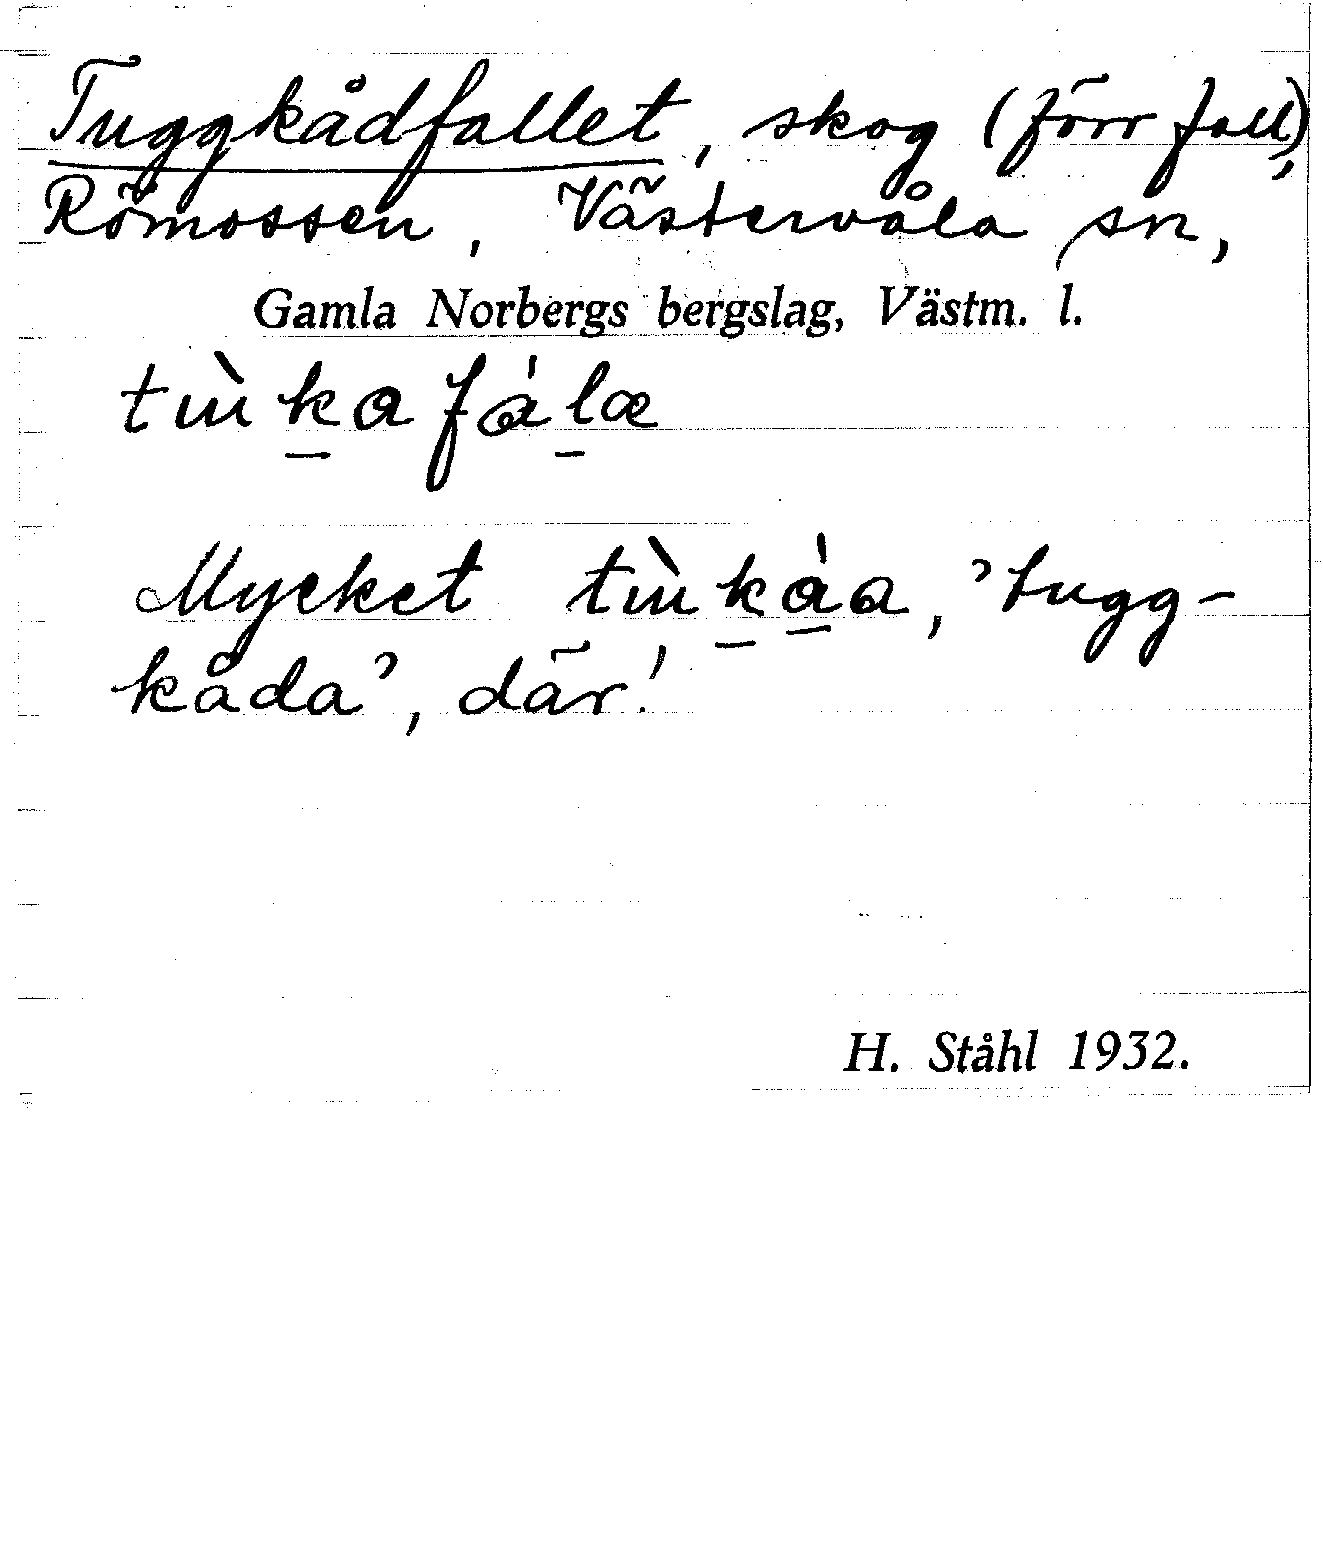 Tuggkådfallet, skog (förr fall),
Römossen, Västervåla sn,
Gamla Norbergs bergslag, Västm. l.
tùkafála
Mycket tùkàa, 'tugg-
kåda', där!
H. Ståhl 1932.